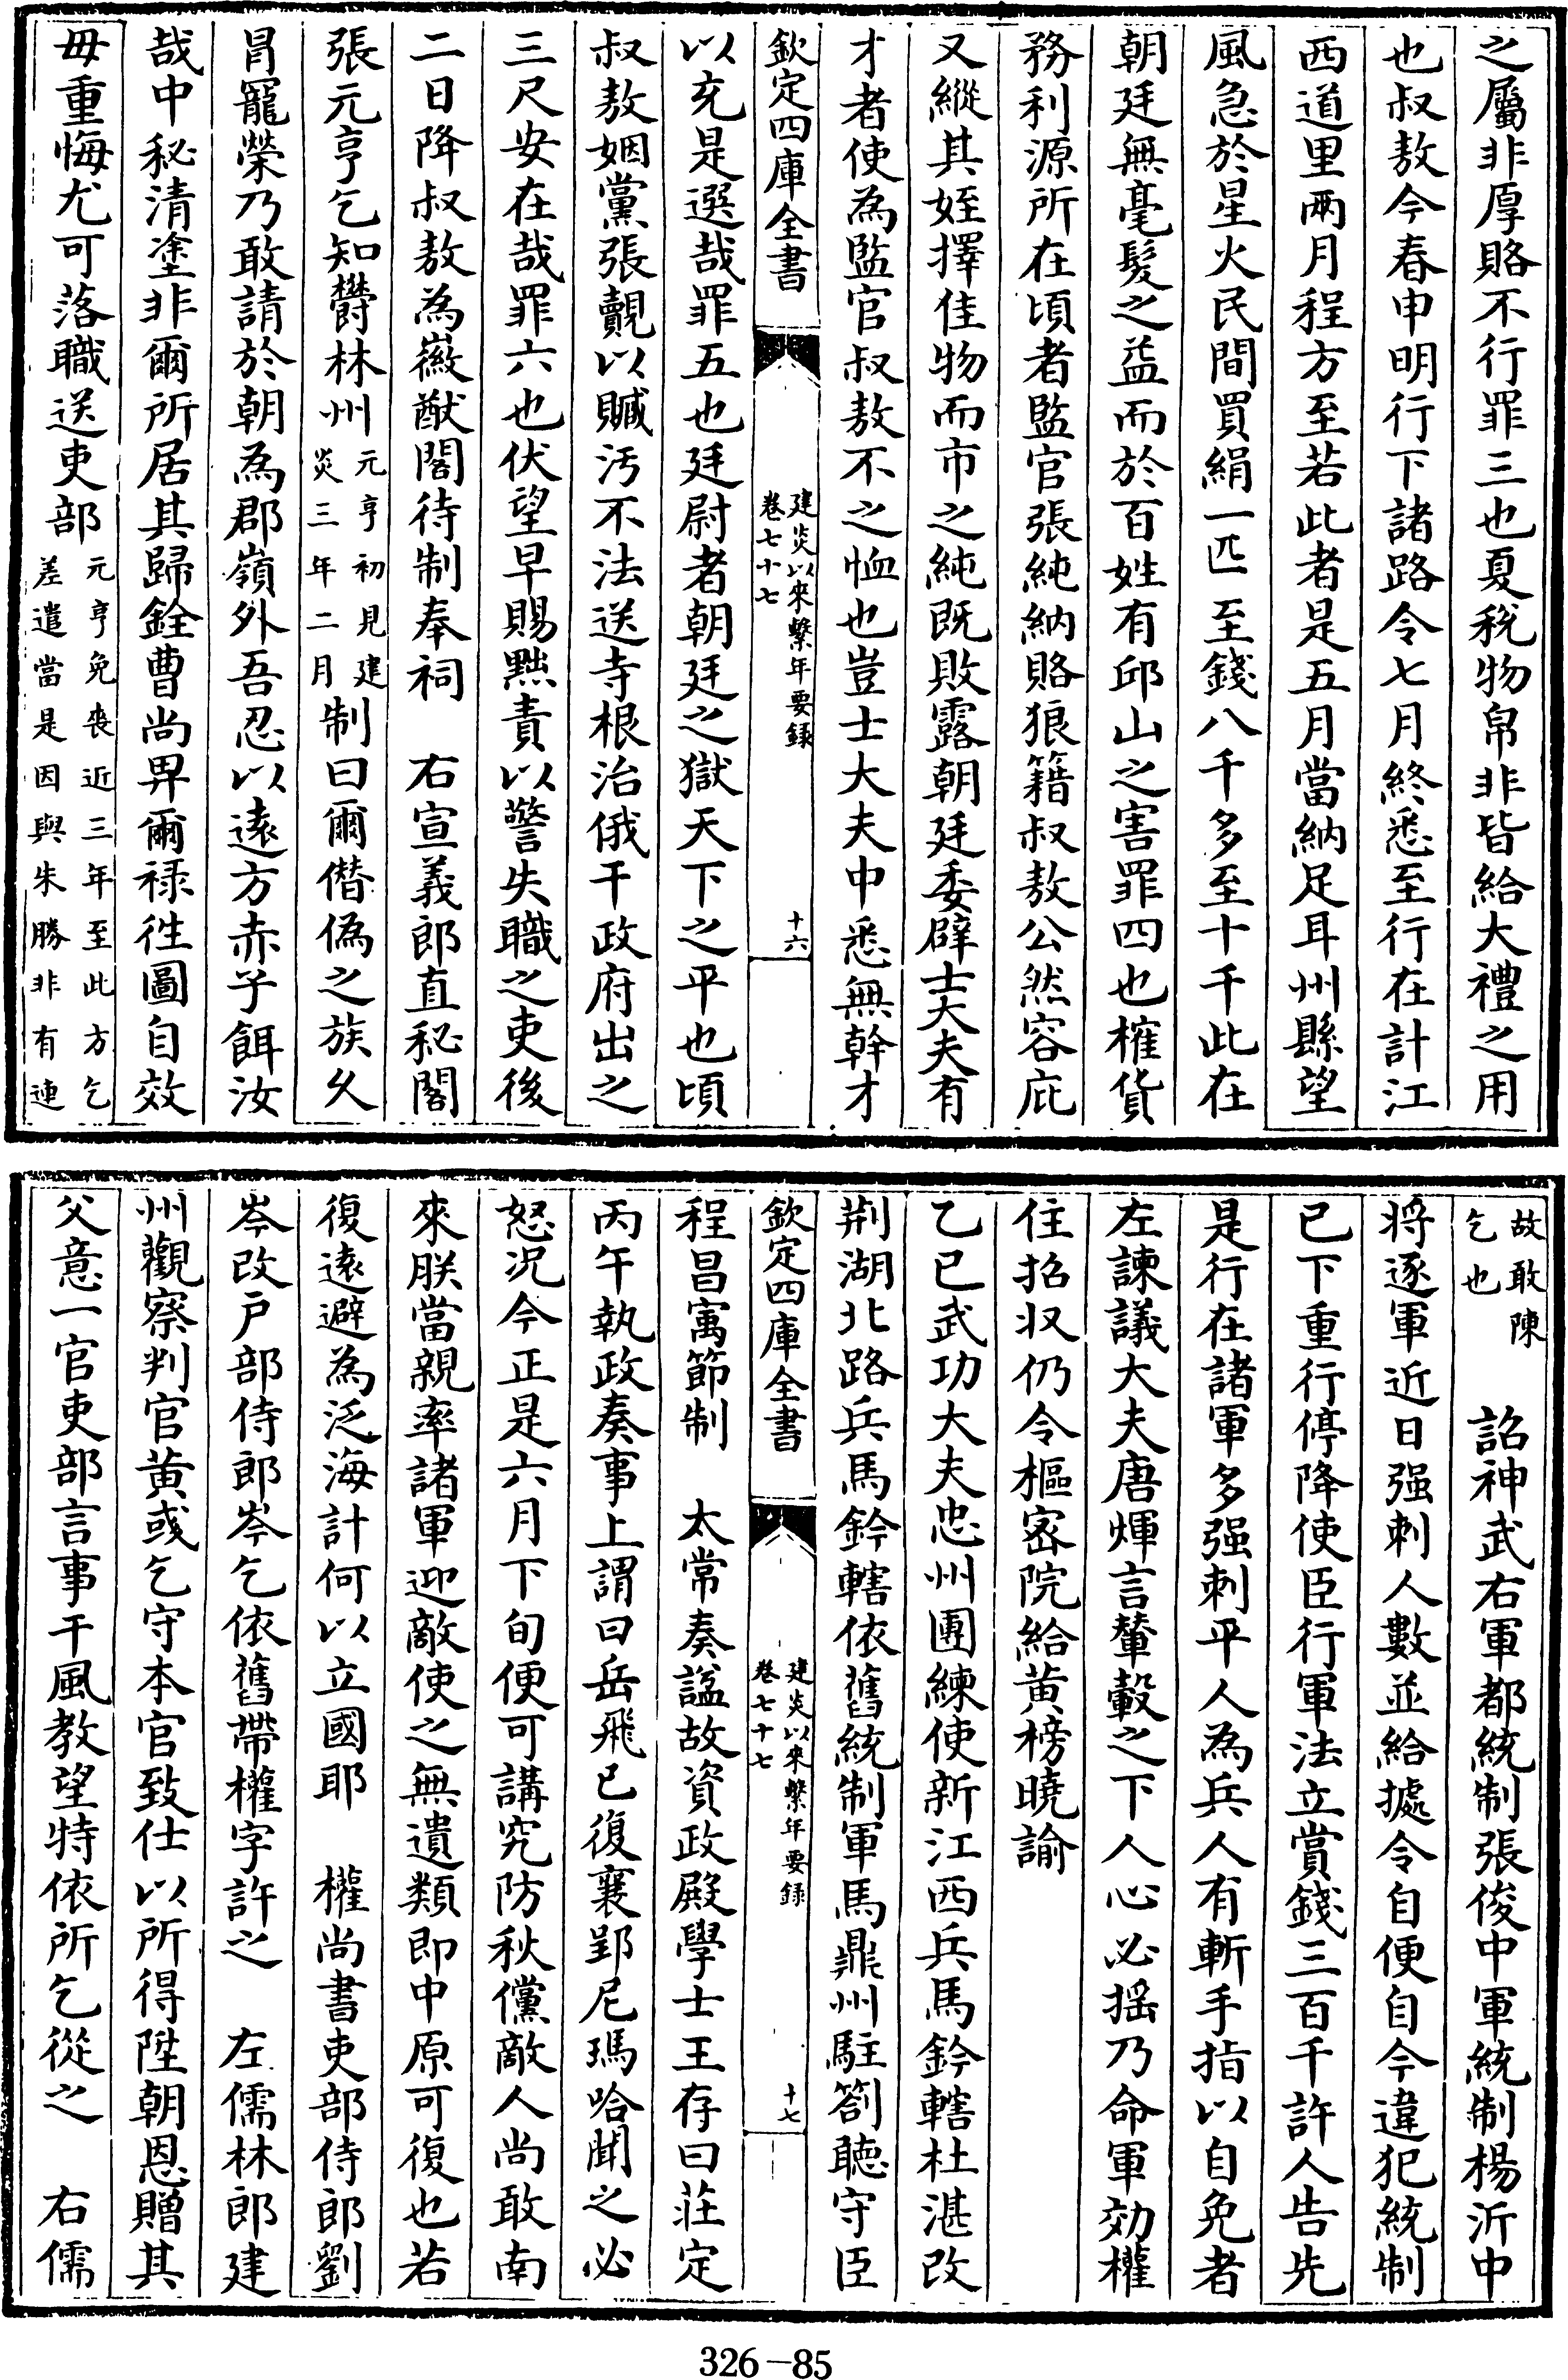 之屬非厚賂不行罪三也夏稅物帛非皆給大禮之用
也叔敖今春申明行下諸路令七月終悉至行在計江
西道里兩月程方至若此者是五月當納足耳州縣望
風急於星火民間買絹一匹至錢八千多至十千此在
朝廷無毫髮之益而於百姓有邱山之害罪四也榷貨
務利源所在頃者監官張純納賂狼籍叔敖公然容庇
又縱其姪擇佳物而市之純既敗露朝廷委辟士大夫有
才者使為監官叔敖不之恤也豈士大夫中悉無幹才
欽定四庫全書
建炎以來繫年要録
卷七十七
十六
以充是選哉罪五也廷尉者朝廷之獄天下之平也頃
叔敖姻黨張覿以贓汚不法送寺根治俄干政府出之
三尺安在哉罪六也伏望早賜黜責以警失職之吏後
二日降叔敖為徽猷閣待制奉祠　右宣義郎直秘閣
張元亨乞知欝林州元亨初見建
炎三年二月制曰爾僭偽之族久
冐寵榮乃敢請於朝為郡嶺外吾忍以遠方赤子餌汝
哉中秘清塗非爾所居其歸銓曹尚畀爾禄徃圖自效
毋重悔尤可落職送吏部元亨免喪近三年至此方乞
差遣當是因與朱勝非有連
故敢陳
乞也　詔神武右軍都統制張俊中軍統制楊沂中
將逐軍近日强刺人數並給㨿令自便自今違犯統制
已下重行停降使臣行軍法立賞錢三百千許人告先
是行在諸軍多强刺平人為兵人有斬手指以自免者
左諫議大夫唐煇言輦轂之下人心必揺乃命軍効權
住招収仍令樞密院給黄榜曉諭
乙巳武功大夫忠州團練使新江西兵馬鈐轄杜湛改
荆湖北路兵馬鈐轄依舊統制軍馬鼎州駐劄聽守臣
欽定四庫全書
建炎以來繫年要録
卷七十七
十七
程昌寓節制　太常奏諡故資政殿學士王存曰莊定
丙午執政奏事上謂曰岳飛已復襄郢尼瑪哈聞之必
怒况今正是六月下旬便可講究防秋儻敵人尚敢南
來朕當親率諸軍迎敵使之無遺類即中原可復也若
復遠避為泛海計何以立國耶　權尚書吏部侍郎劉
岑改户部侍郎岑乞依舊帶權字許之　左儒林郎建
州觀察判官黄彧乞守本官致仕以所得陞朝恩贈其
父意一官吏部言事干風教望特依所乞從之　右儒
326-85